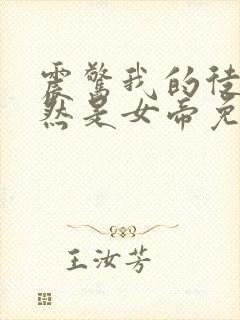 震惊我的徒
然是女帝免
王汝芳